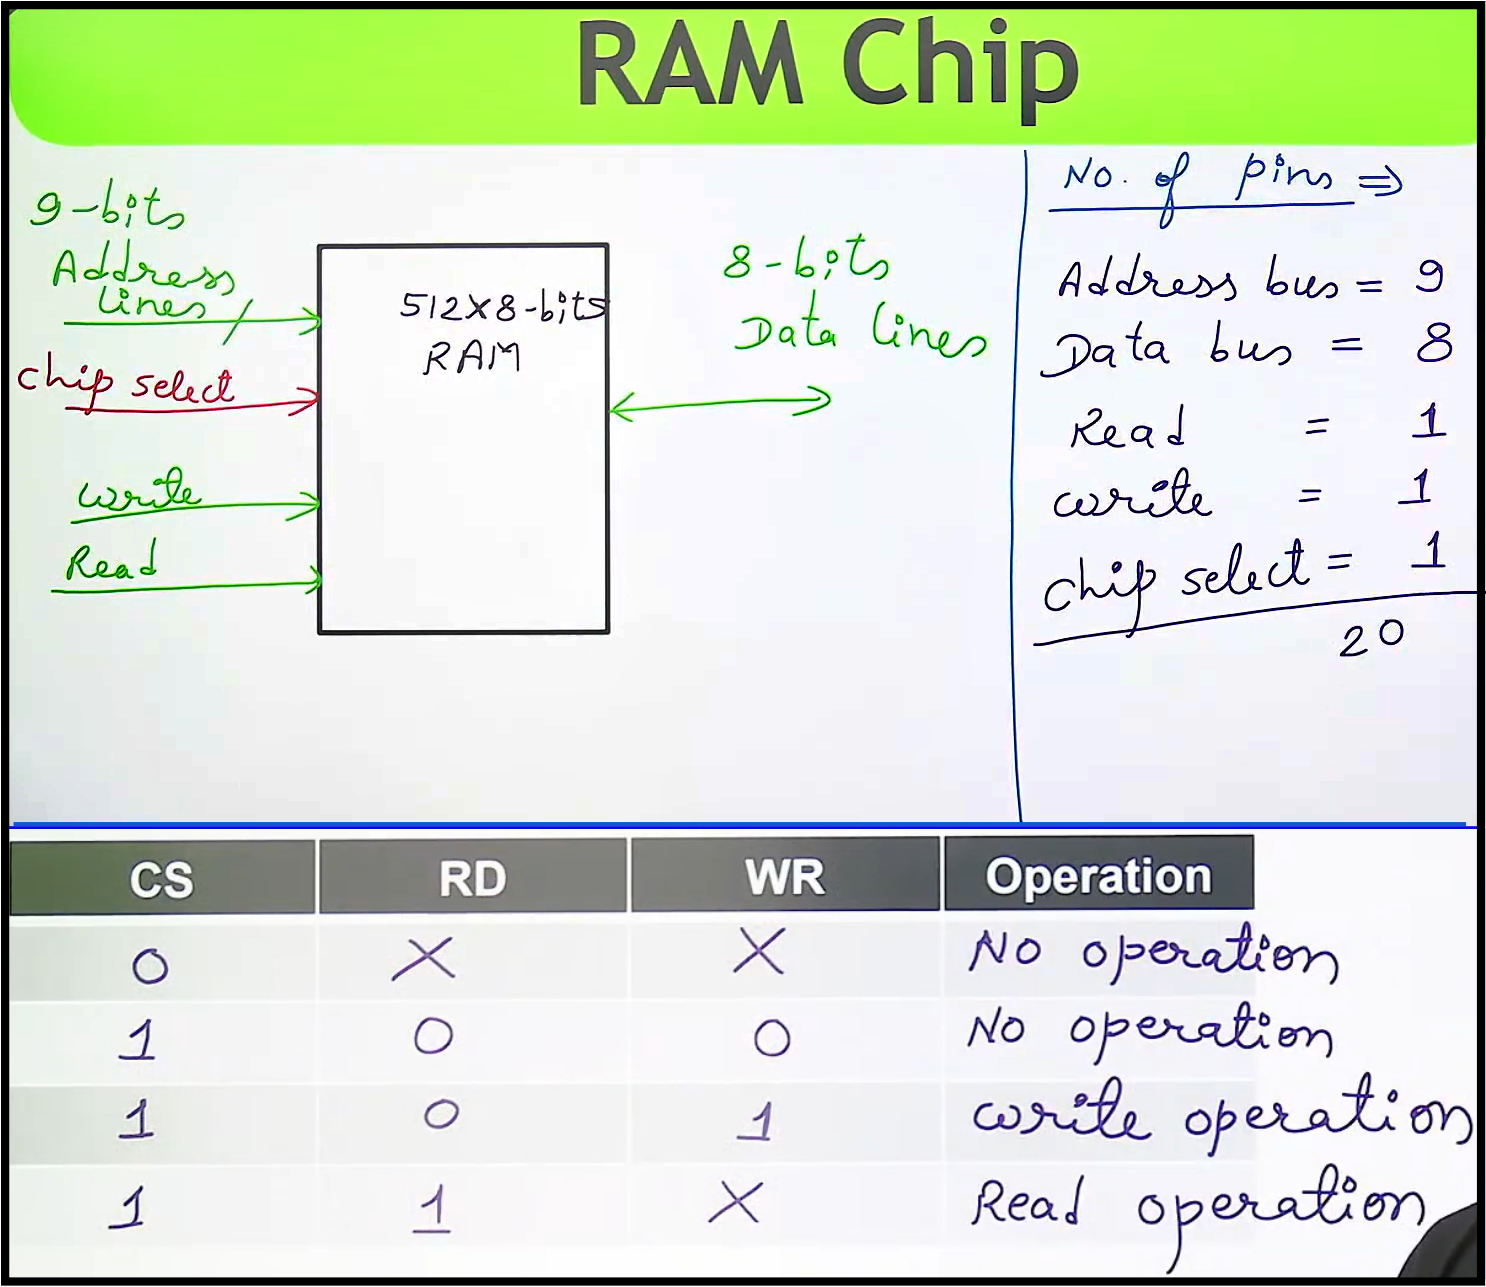 RAM Chip
9-bits
Address
lines
chip select
write
Read
512X8-bits
RAM
8-bits
Data lines
No. of pins ⇒
Address bus = 9
Data bus = 8
Read = 1
write = 1
chip select = 1
20
CS RD WR Operation
0 X X No operation
1 0 0 No operation
1 0 1 write operation
1 1 X Read operation